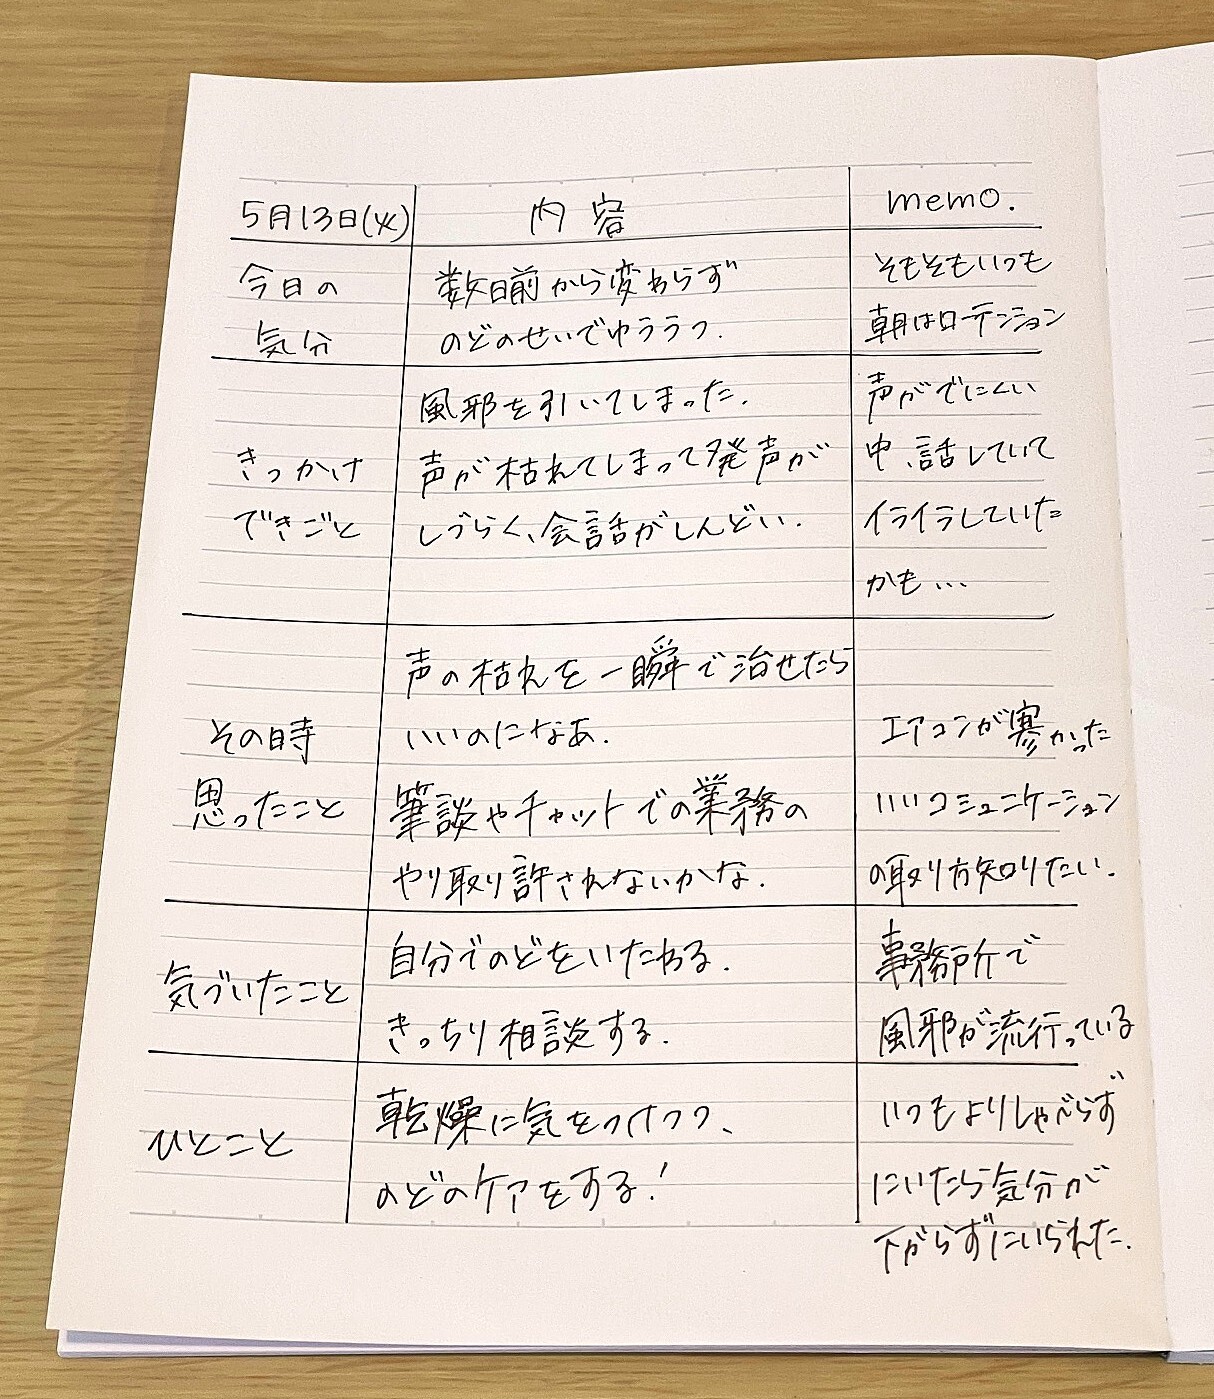 5月13日(火) 内容 memo.
今日の
気分
数日前から変わらず
のどのせいでゆううつ.
そもそもいつも
朝はローテンション
きっかけ
できごと
風邪を引いてしまった.
声が枯れてしまって発声が
しづらく、会話がしんどい.
声がでにくい
中、話していて
イライラしていた
かも...
その時
思ったこと
声の枯れを一瞬で治せたら
いいのになあ.
筆談やチャットでの業務の
やり取り許されないかな.
エアコンが寒かった
いいコミュニケーション
の取り方知りたい.
気づいたこと
自分でのどをいたわる.
きっちり相談する.
事務所で
風邪が流行っている
ひとこと
乾燥に気をつけつつ、
のどのケアをする!
いつもよりしゃべらず
にいたら気分が
下がらずにいられた.